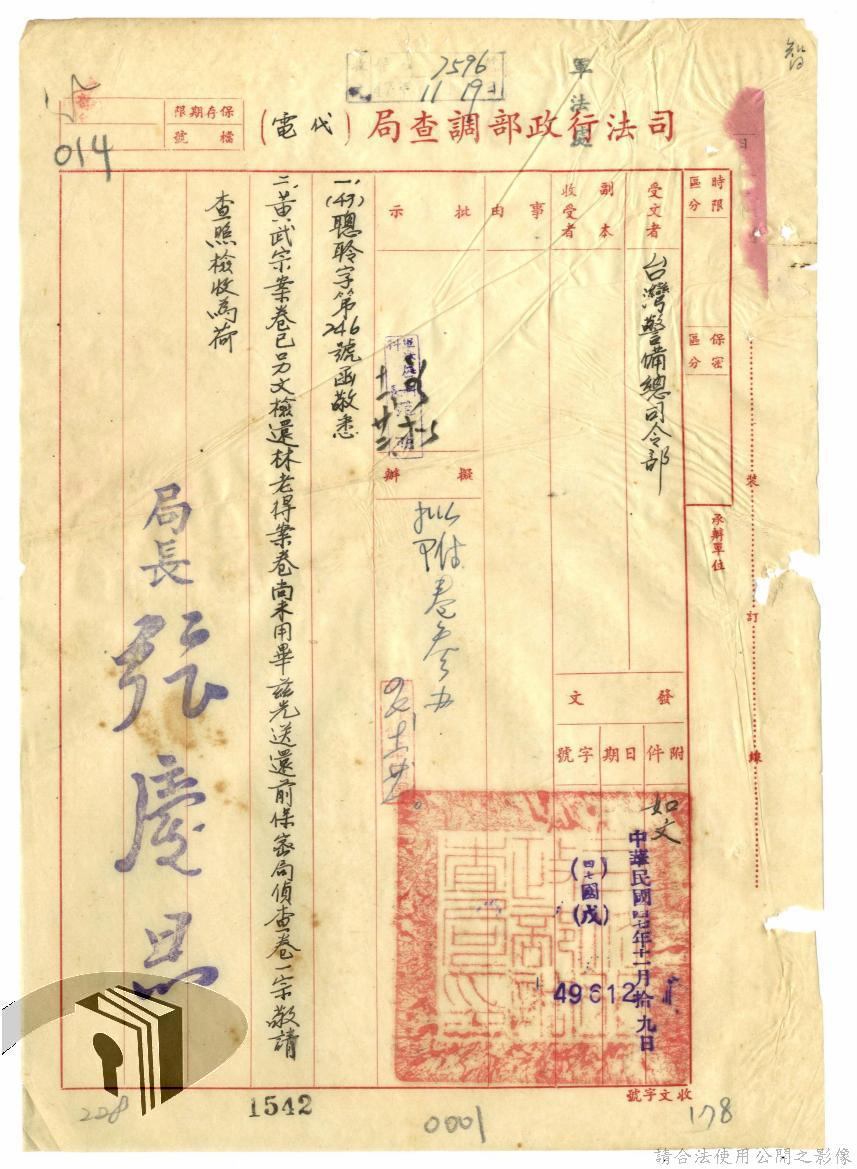 7596
11 19
軍法處
保存期限
檔號
014
司法行政部調查局(代電)
時限區分
保密區分
受文者
台灣警備總司令部
副本收受者
事由
批示
擬辦
發文
附件
日期
字號
如文
中華民國四七年十一月拾九日
(四七)國(戊)
49612
一、(47)聰聆字第246號函敬悉
二、黃武宗案卷已另文檢還林老得案卷尚未用畢茲先送還前保密局偵查卷一宗敬請
查照檢收為荷
局長 張慶恩
承辦單位
裝
訂
線
收文字號
228
1542
0001
178
請合法使用公開之影像